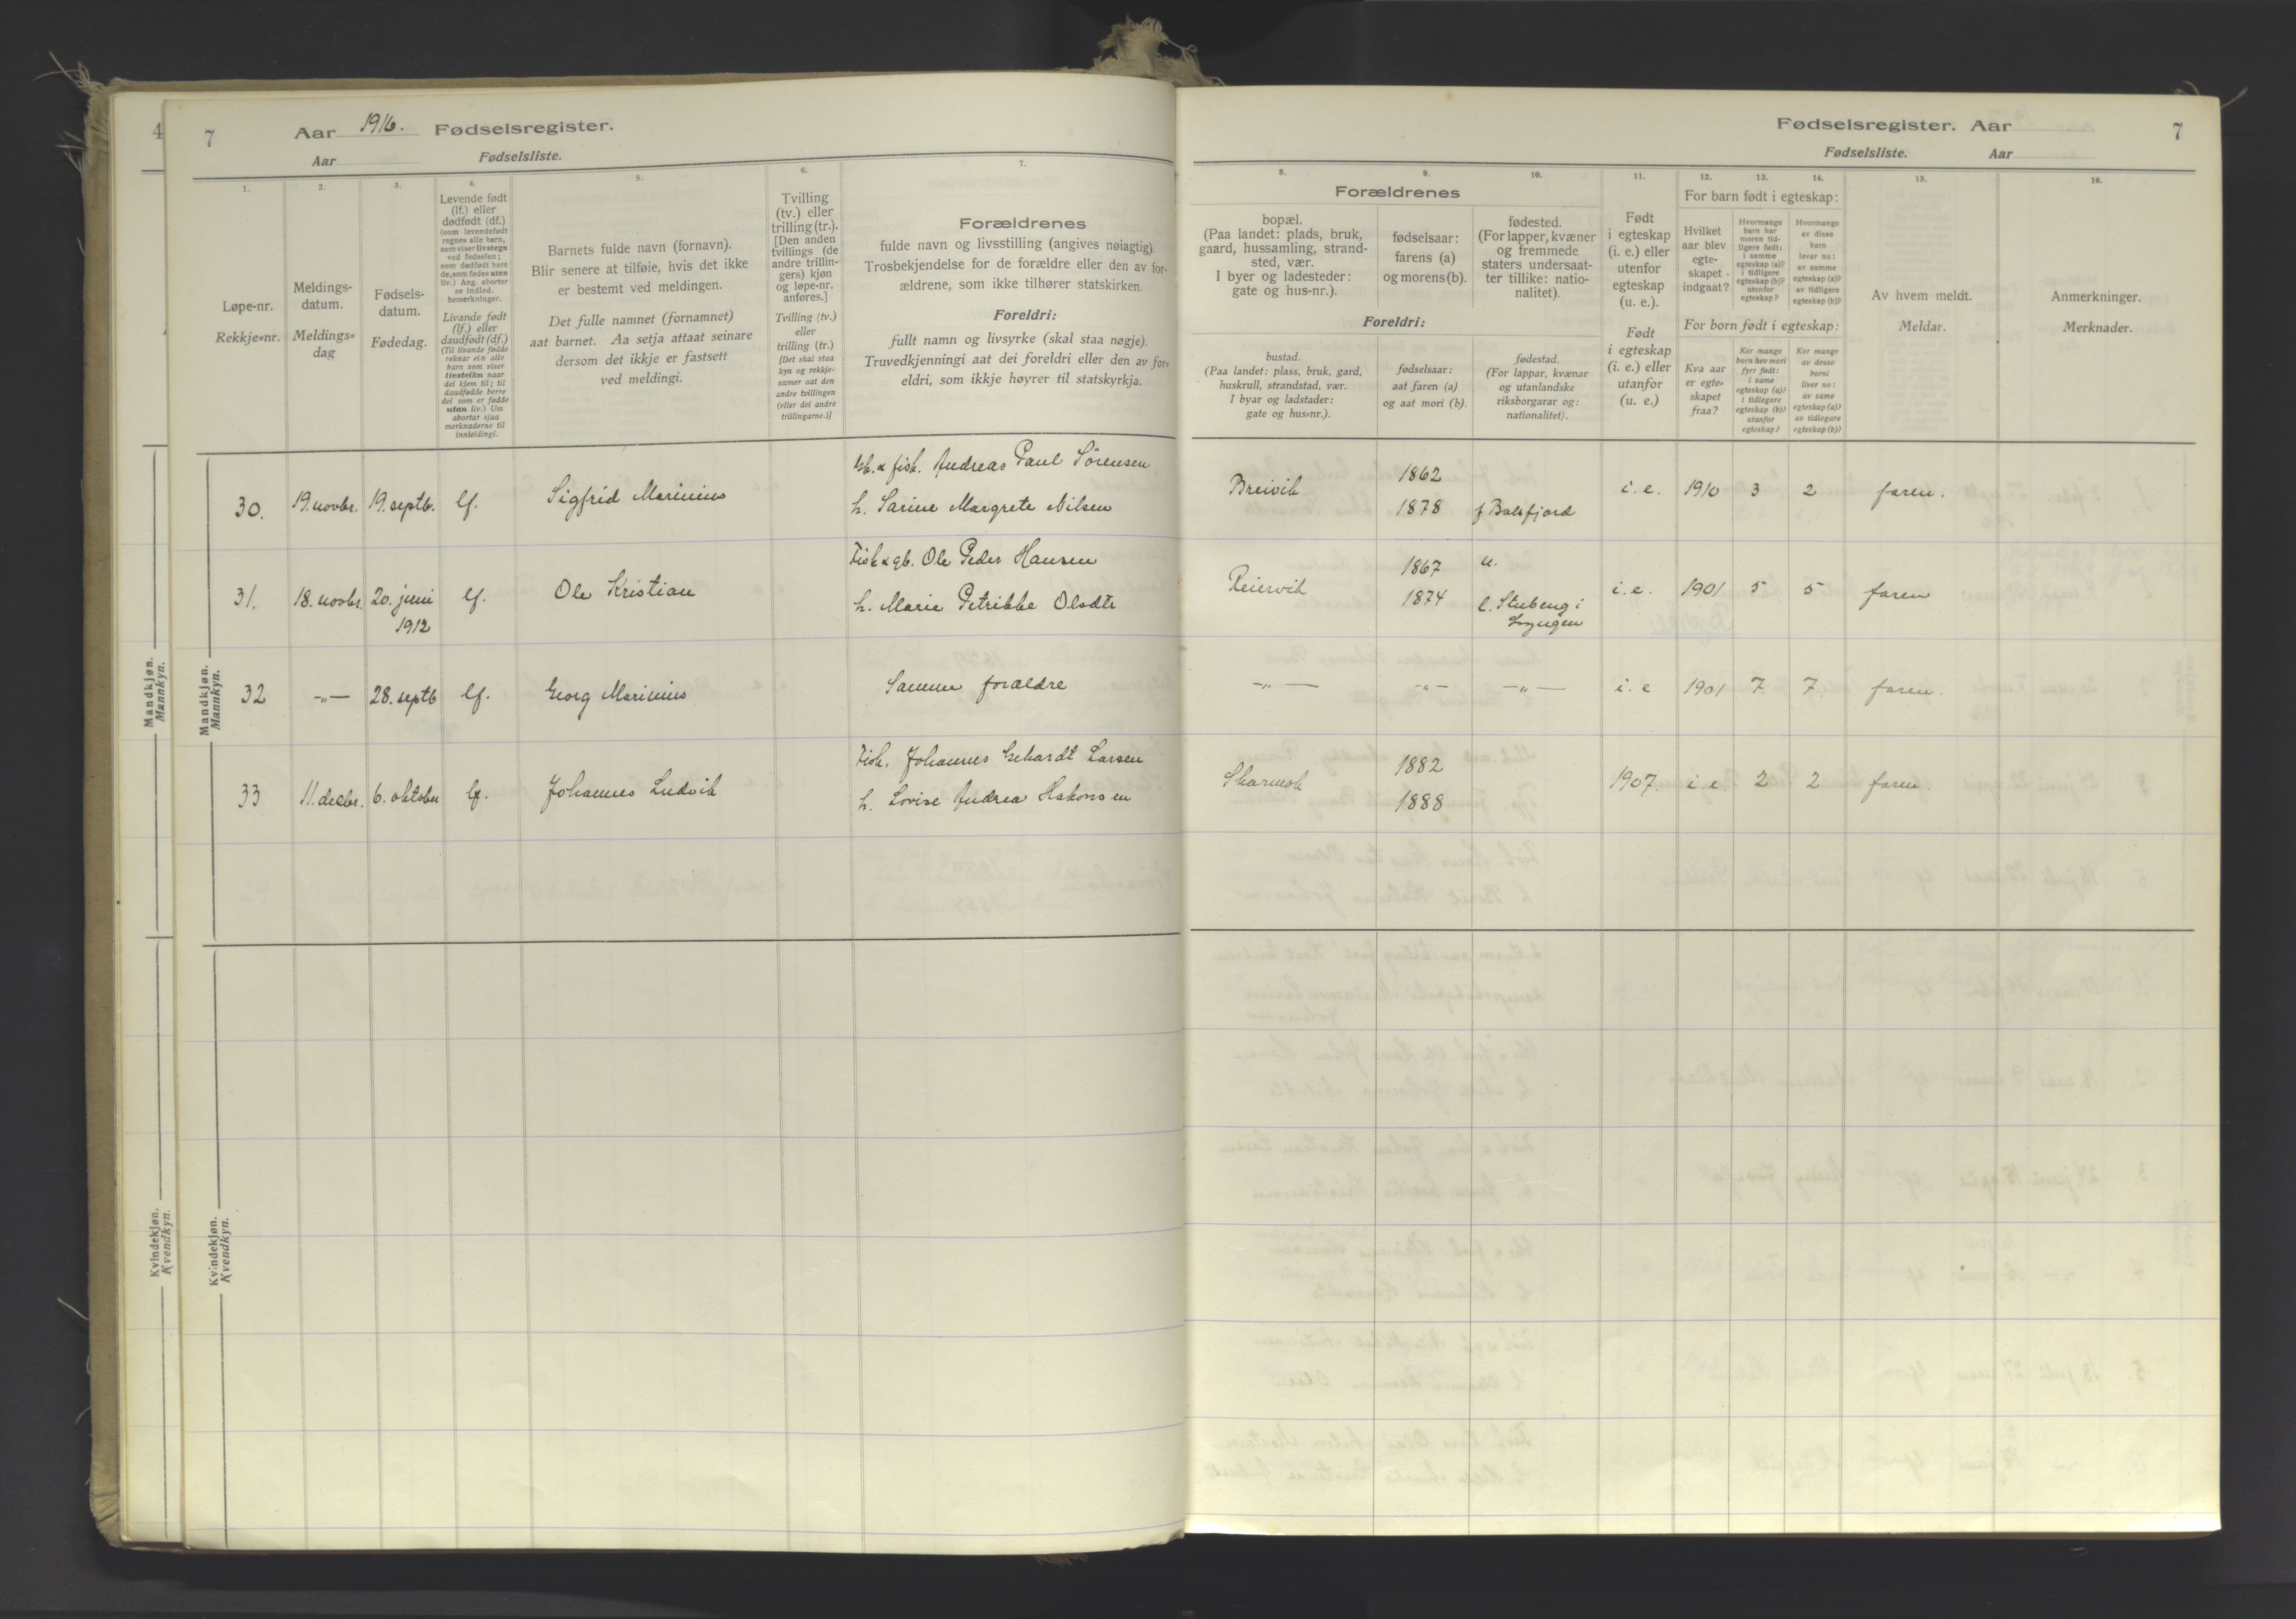 4
7
Aar 1916. Fødselsregister.
Aar Fødselsliste.
Fødselsregister. Aar
7
Fødselsliste. Aar
1.
Løpe-nr.
Rekkje=nr.
2.
Meldings-
datum.
Meldings=
dag
3.
Fødsels-
datum.
Fødedag.
4.
Levende født
(lf.) eller
dødfødt (df.)
(som levendefødt
regnes alle barn,
som viser livstegn
ved fødselen;
som dødfødt bare
de, som fødes uten
liv.) Ang. aborter
se indled.
bemerkninger.
Livande født
(lf.) eller
daudfødt (df.)
(Til livande fødde
reknar ein alle
barn som viser
livsteikn naar
dei kjem til; til
daudfødde berre
dei som er fødde
utan liv.) Um
abortar sjaa
merknaderne til
innleidingi.
5.
Barnets fulde navn (fornavn).
Blir senere at tilføie, hvis det ikke
er bestemt ved meldingen.
Det fulle namnet (fornamnet)
aat barnet. Aa setja attaat seinare
dersom det ikkje er fastsett
ved meldingi.
6.
Tvilling
(tv.) eller
trilling (tr.).
[Den anden
tvillings (de
andre trillin-
gers) kjøn
og løpe-nr.
anføres.]
Tvilling (tv.)
eller
trilling (tr.)
[Det skal staa
kyn og rekkje-
numer aat den
andre tvillingen
(eller dei andre
trillingarne.)]
7.
Forældrenes
fulde navn og livsstilling (angives nøiagtig).
Trosbekjendelse for de forældre eller den av for-
ældrene, som ikke tilhører statskirken.
Foreldri:
fullt namn og livsyrke (skal staa nøgje).
Truvedkjenningi aat dei foreldri eller den av for=
eldri, som ikkje høyrer til statskyrkja.
8.
9.
10.
Forældrenes
bopæl.
(Paa landet: plads, bruk,
gaard, hussamling, strand-
sted, vær.
I byer og ladesteder:
gate og hus-nr.).
fødselsaar:
farens (a)
og morens (b).
fødested.
(For lapper, kvæner
og fremmede
staters undersaat-
ter tillike: natio-
nalitet).
Foreldri:
bustad.
(Paa landet: plass, bruk, gard,
huskrull, strandstad, vær.
I byar og ladstader:
gate og hus=nr.).
fødselsaar:
aat faren (a)
og aat mori (b).
fødestad.
(For lappar, kvænar
og utanlandske
riksborgarar og:
nationalitet).
11.
Født
i egteskap
(i. e.) eller
utenfor
egteskap
(u. e.).
Født
i egteskap
(i. e.) eller
utanfor
(u. e.)
12.
13.
14.
For barn født i egteskap:
Hvilket
aar blev
egte-
skapet
indgaat?
Hvormange
barn har
moren tid-
ligere født:
i samme
egteskap (a)?
i tidligere
egteskap (b)?
utenfor
egteskap?
Hvormange
av disse
barn
lever nu:
av samme
egteskap (a)?
av tidligere
egteskap (b)?
For born født i egteskap:
Kva aar
er egte=
skapet
fraa?
Kor mange
born hev mori
fyrr født:
i same
egteskap (a)?
i tidlegare
egteskap (b)?
utanfor
egteskap?
Kor mange
av desse
borni
liver no:
av same
egteskap (a)?
av tidlegare
egteskap (b)?
15.
Av hvem meldt.
Meldar.
16.
Anmerkninger.
Merknader.
Mandkjøn.
Mannkyn.
Mandkjøn.
Mannkyn.
Gb. & fisk. Andreas Paul Sörensen 1862
30. 19. novbr. 19. septb. lf. Sigfrid Marinius h. Sarine Margrete Nilsen Breivik 1878 f Balsfjord i. e. 1910 3 2 faren.
Fisk & gb. Ole Peder Hansen 1867 u.
31. 18. novbr. 20. juni lf. Ole Kristian h. Marie Petrikke Olsdtr Reiervik 1874 i. e. 1901 5 5 faren
1912 Lyngen
32 -„- 28. septb lf. Georg Marinius Samme forældre -„- -„- -„- i. e 1901 7 7. faren.
Fisk. Johannes Gehardt Larsen 1882
33 11. decbr. 6. oktober lf. Johannes Ludvik h. Lovise Andrea Hakonsen Skarmok 1888 1907. i. e. 2 2 faren.
Kvindekjøn.
Kvendkyn.
Kvindekjøn.
Kvendkyn.